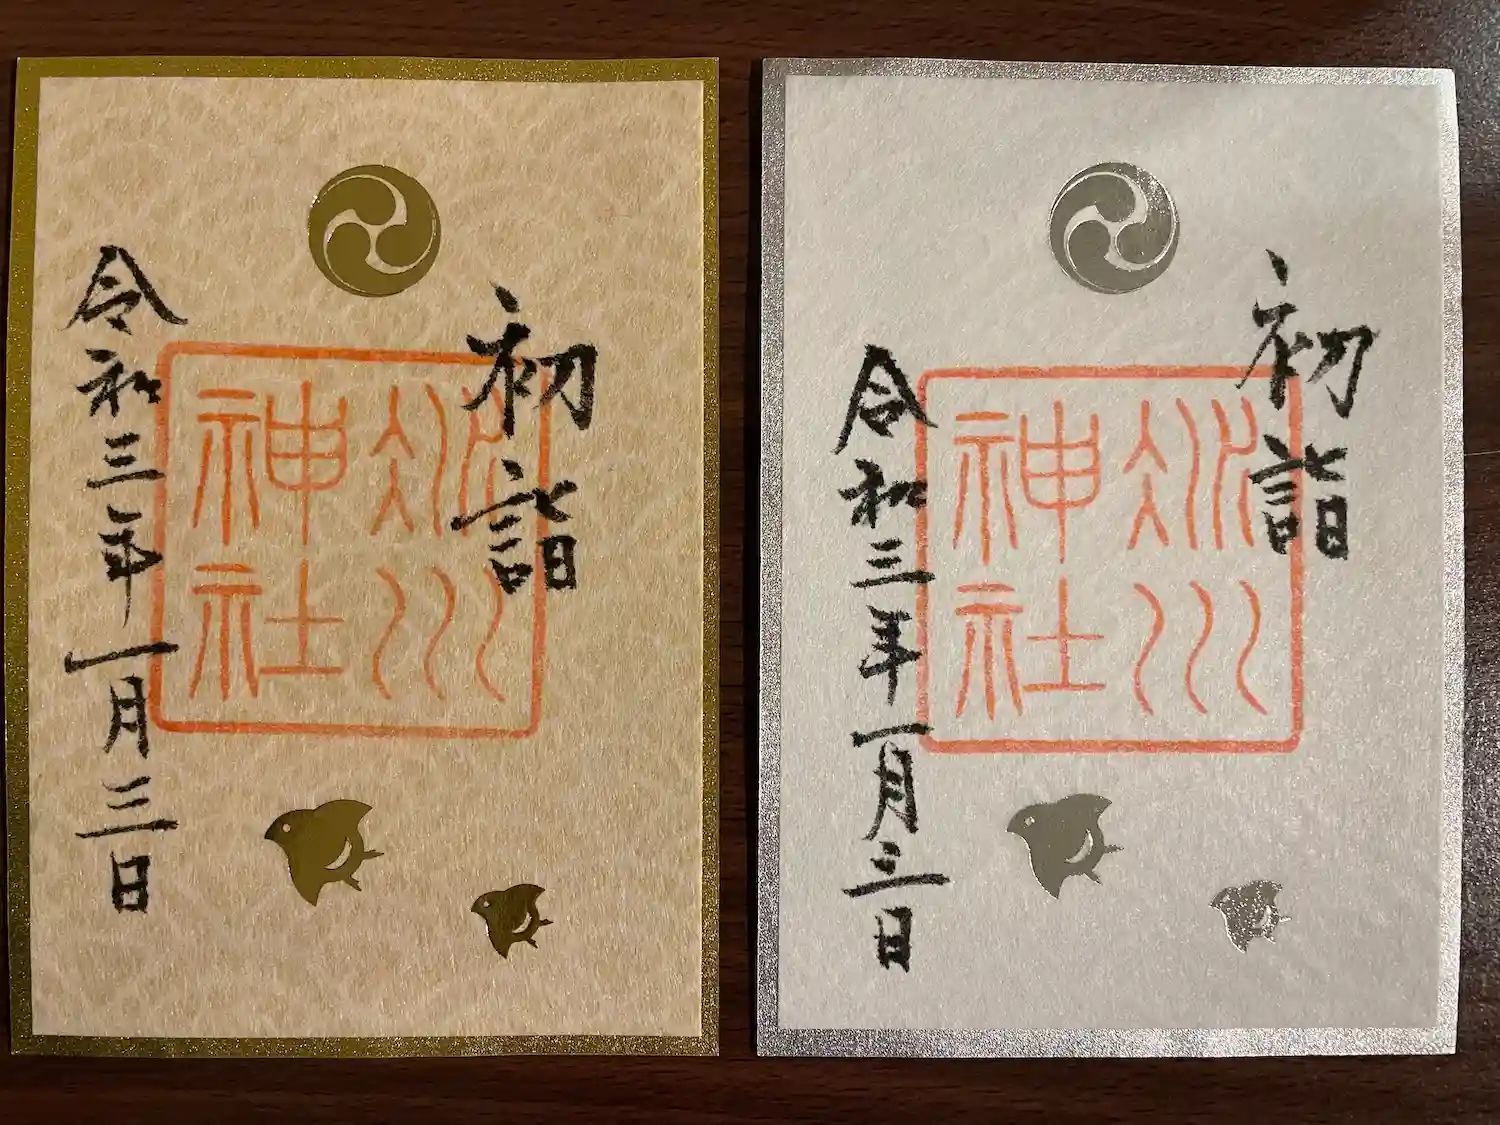 初詣
氷川
神社
令和三年一月三日
初詣
氷川
神社
令和三年一月三日